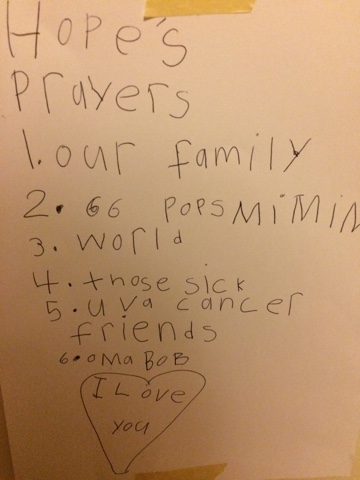 Hope's
Prayers
1. our family
2. GG Pops MiMiM
3. world
4. those sick
5. uva cancer
friends
6. OMA BOB
I Love
you